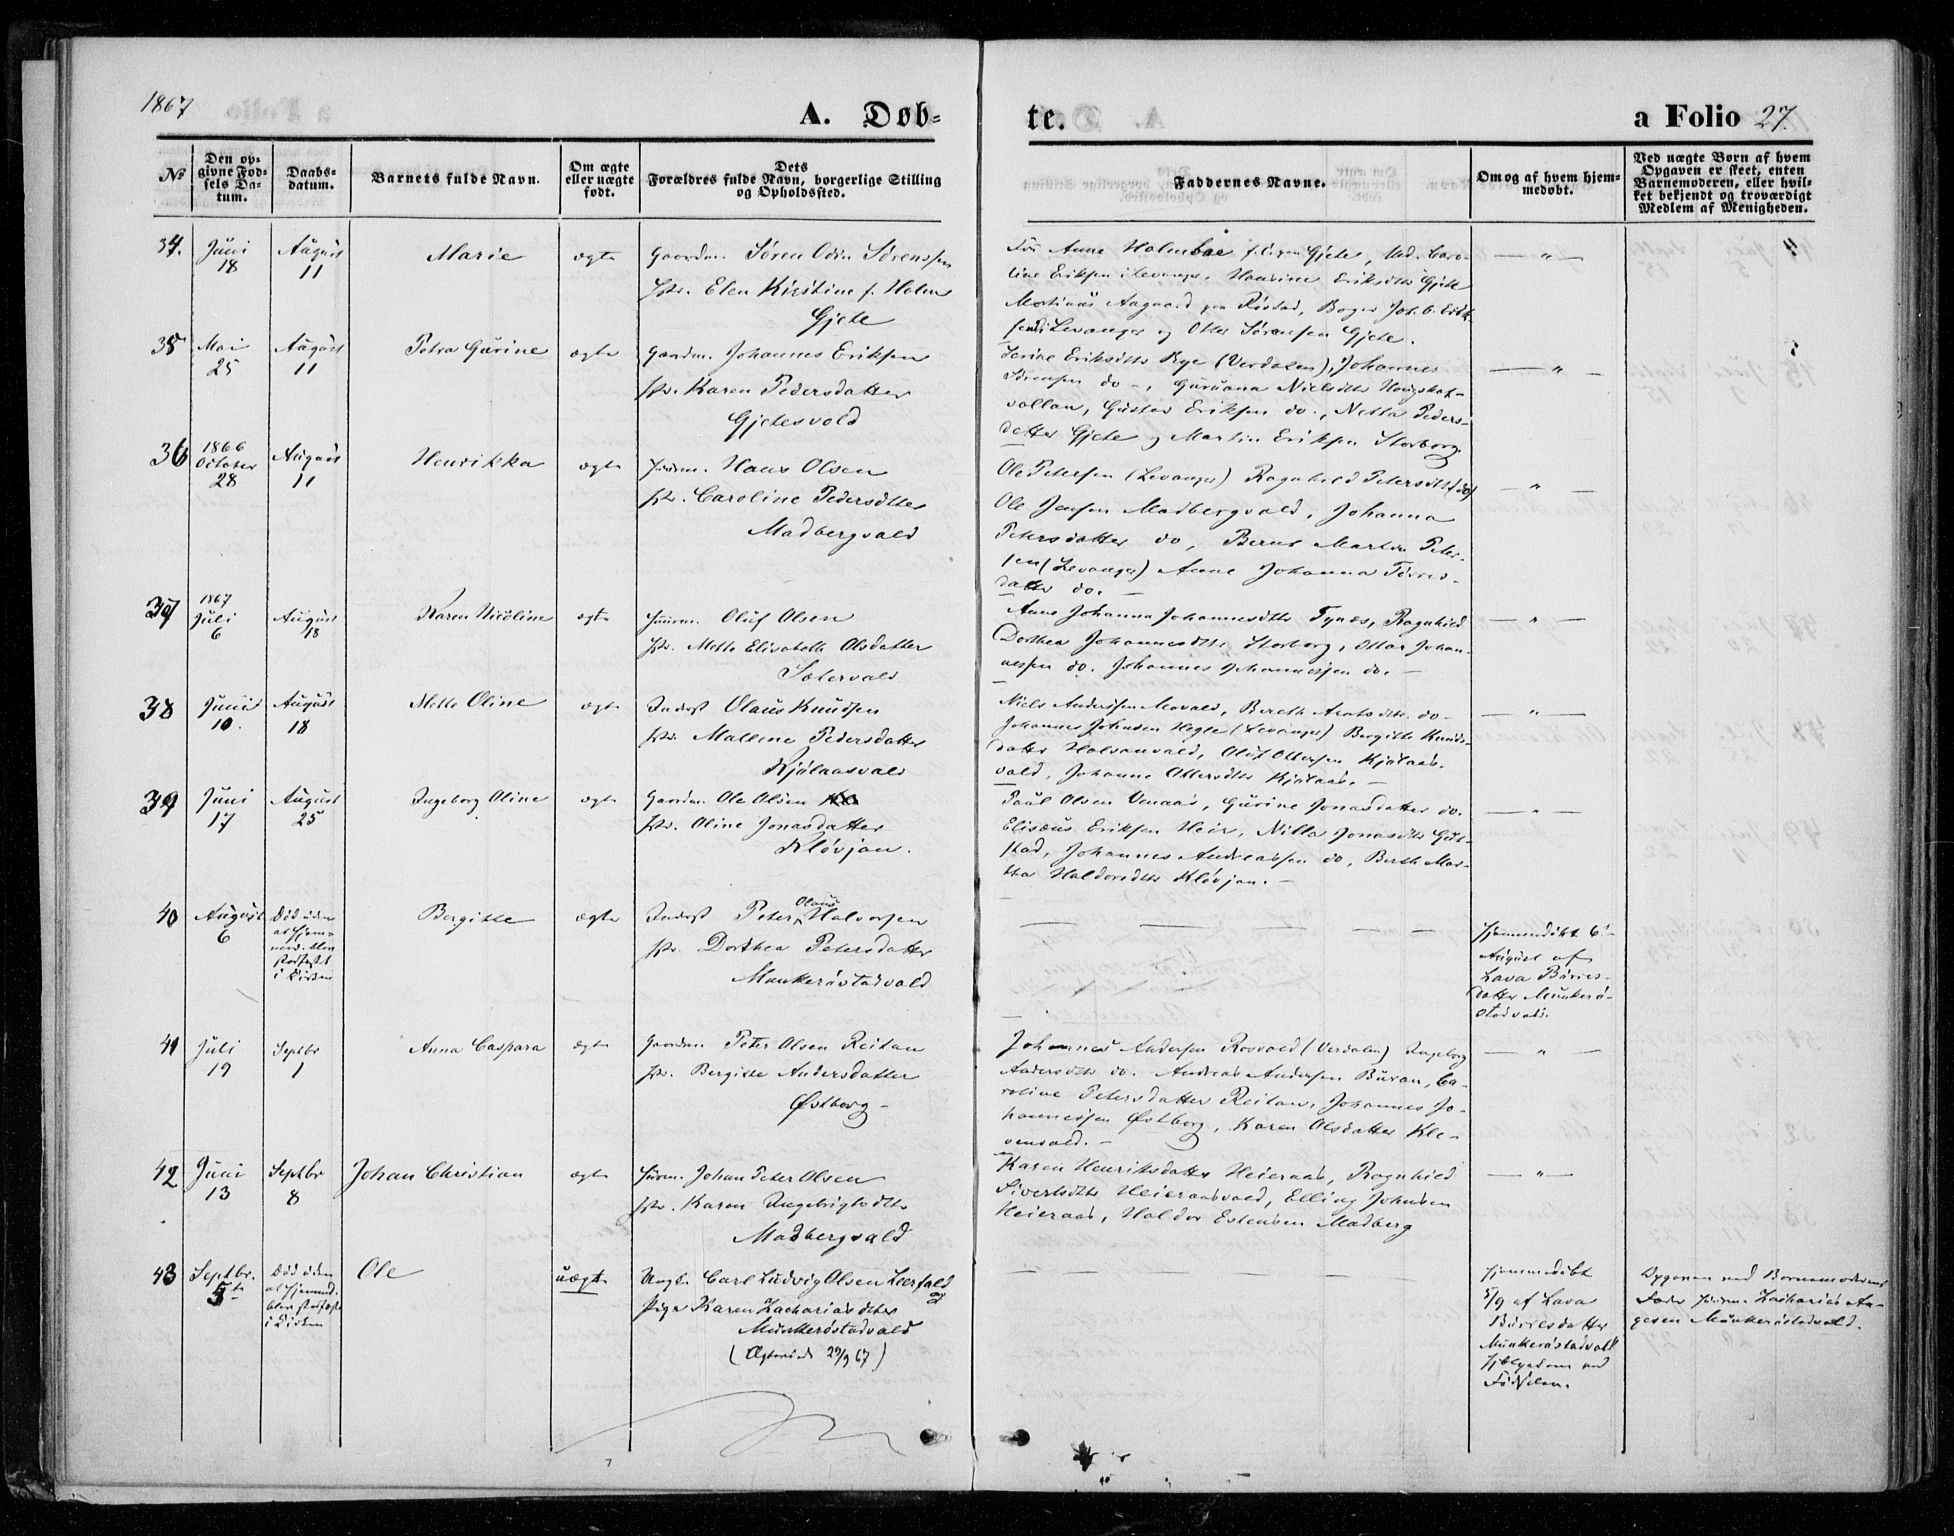 1867
A. Døb-
te.
a Folio 27.
No
Den op-
givne Fød-
sels Da-
tum.
Daabs-
datum.
Barnets fulde Navn.
Om ægte
eller uægte
født.
Dets
Forældres fulde Navn, borgerlige Stilling
og Opholdssted.
Faddernes Navne.
Om og af hvem hjem-
medøbt.
Ved uægte Børn af hvem
Opgaven er skeet, enten
Barnemoderen, eller hvil-
ket bekjendt og troværdigt
Medlem af Menigheden.
34.
Juni
18
August
11
Marie
ægte
Gaardm. Søren Odin Sørenssen
Hstr. Elen Kirstine f. Holm
Gjete
Anne Holmboe Gjete, Mad. Caro-
line Eriksen i Levanger, Eriksdtt Gjete
Martinus Aagaard paa Røstad, Bager Joh. B. Erik-
sen i Levanger og Otter Sørensen Gjete.
35
Mai
25
August
11
Petra Gurine
ægte
Gaardm. Johannes Eriksen
Hstr. Karen Pedersdatter
Gjetesvold
Serine Eriksdtt Bye (Verdalen), Johannes
Sørensen do -, Guruana Nielsdtt
vollan, Gustav Eriksen do., Netta Peders-
datter Gjete og Martin Eriksen Storborg.
36
1866
October
28
August
11
Henrikka
ægte
Huusm. Hans Olsen
Hstr. Caroline Pedersdtter
Madbergvald
Ole Petersen (Levanger) Ragnhild Petersdtt (do)
Ole Jensen Madbergvald, Johanna
Petersdatter do, Bernt Martin Peter-
sen (Levanger) Anne Johanna Tørres-
datter do. -
37
1867
Juli
6
August
18
Karen Nicoline
ægte
Huusm. Oluf Olsen
Hstr. Mette Elisabeth Olsdatter
Sætervald
Anne Johanna Johannesdtt Tynes, Ragnhild
Dorthea Johannesdtt Storborg, Ottar Johan-
nessen do. Johannes Johannessen do. -
38
Juni
10.
August
18
Mette Oline
ægte
Inderst Olaus Knudsen
Hstr. Mallene Pedersdatter
Kjølaasvald
Niels Anderssen Movald, Bereth do-
Johannes Johnsen Hegle (Levanger) Bergitte Knuds-
datter Halsanvald, Oluf Ottersen Kjølaas-
vald, Johanne Ottersdtt Kjølaas. -
39
Juni
17
August
25
Ingeborg Oline
ægte
Gaardm. Ole Olsen
Hstr. Oline Jonasdatter
Kløvjan.
Paul Olsen Venaas, Gurine Jonasdatter do.
Elisæus Eriksen Heir, Nilla Jonasdtt Gul-
stad, Johannes Andreassen do, Berth Mar-
tha Haldorsdtt Kløvjan. -
40
August
6
Død uden
at Hjem-
med. blev
stadfæstet
i Kirken
Bergitte
ægte
Inderst Peter Olaus Halvorsen
Hstr. Dorthea Petersdatter
Munkerøstadvald
Hjemmedøbt 6te
August af
Lava Børres-
datter Munkerø-
stadvald.
41
Juli
19
Septbr
1
Anna Caspara
ægte
Gaardm. Peter Olsen Reitan
Hstr. Bergitte Andersdatter
Østborg -
Johannes Andersen Rosvold (Verdalen) Ingeborg
Andersdtt do. Andreas Andersen Buran, Ca-
roline Petersdatter Reitan, Johannes Jo-
hannessen Østborg, Karen Olsdatter Kle-
venvald. -
42
Juni
13
Septbr
8
Johan Christian
ægte
Huusm. Johan Peter Olsen
Hstr. Karen Ingebrigtsdtt.
Madbergvald
Karen Henriksdatter Heieraas, Ragnhild
Sivertsdtt Heieraasvald, Elling Johnsen
Heieraas, Haldor Estensen Madberg
43
Septbr.
5te
Død uden
at Hjemmed.
blev stadfæstet
i Kirken
Ole
uægte
Ungk. Carl Ludvig Olsen Leerfald
og
Pige Karen Zachariasdtter
Munkerøstadvald
(Ægteviede 29/9 67)
Hjemmedøbt
5/9 af Lava
Børresdatter
Munkerøstadvald
Hjelpedame ved
Fødselen.
Opgaven ved Barnemoderens
Fader Huusm. Zacharias Aa-
gesen Munkerøstadvald.